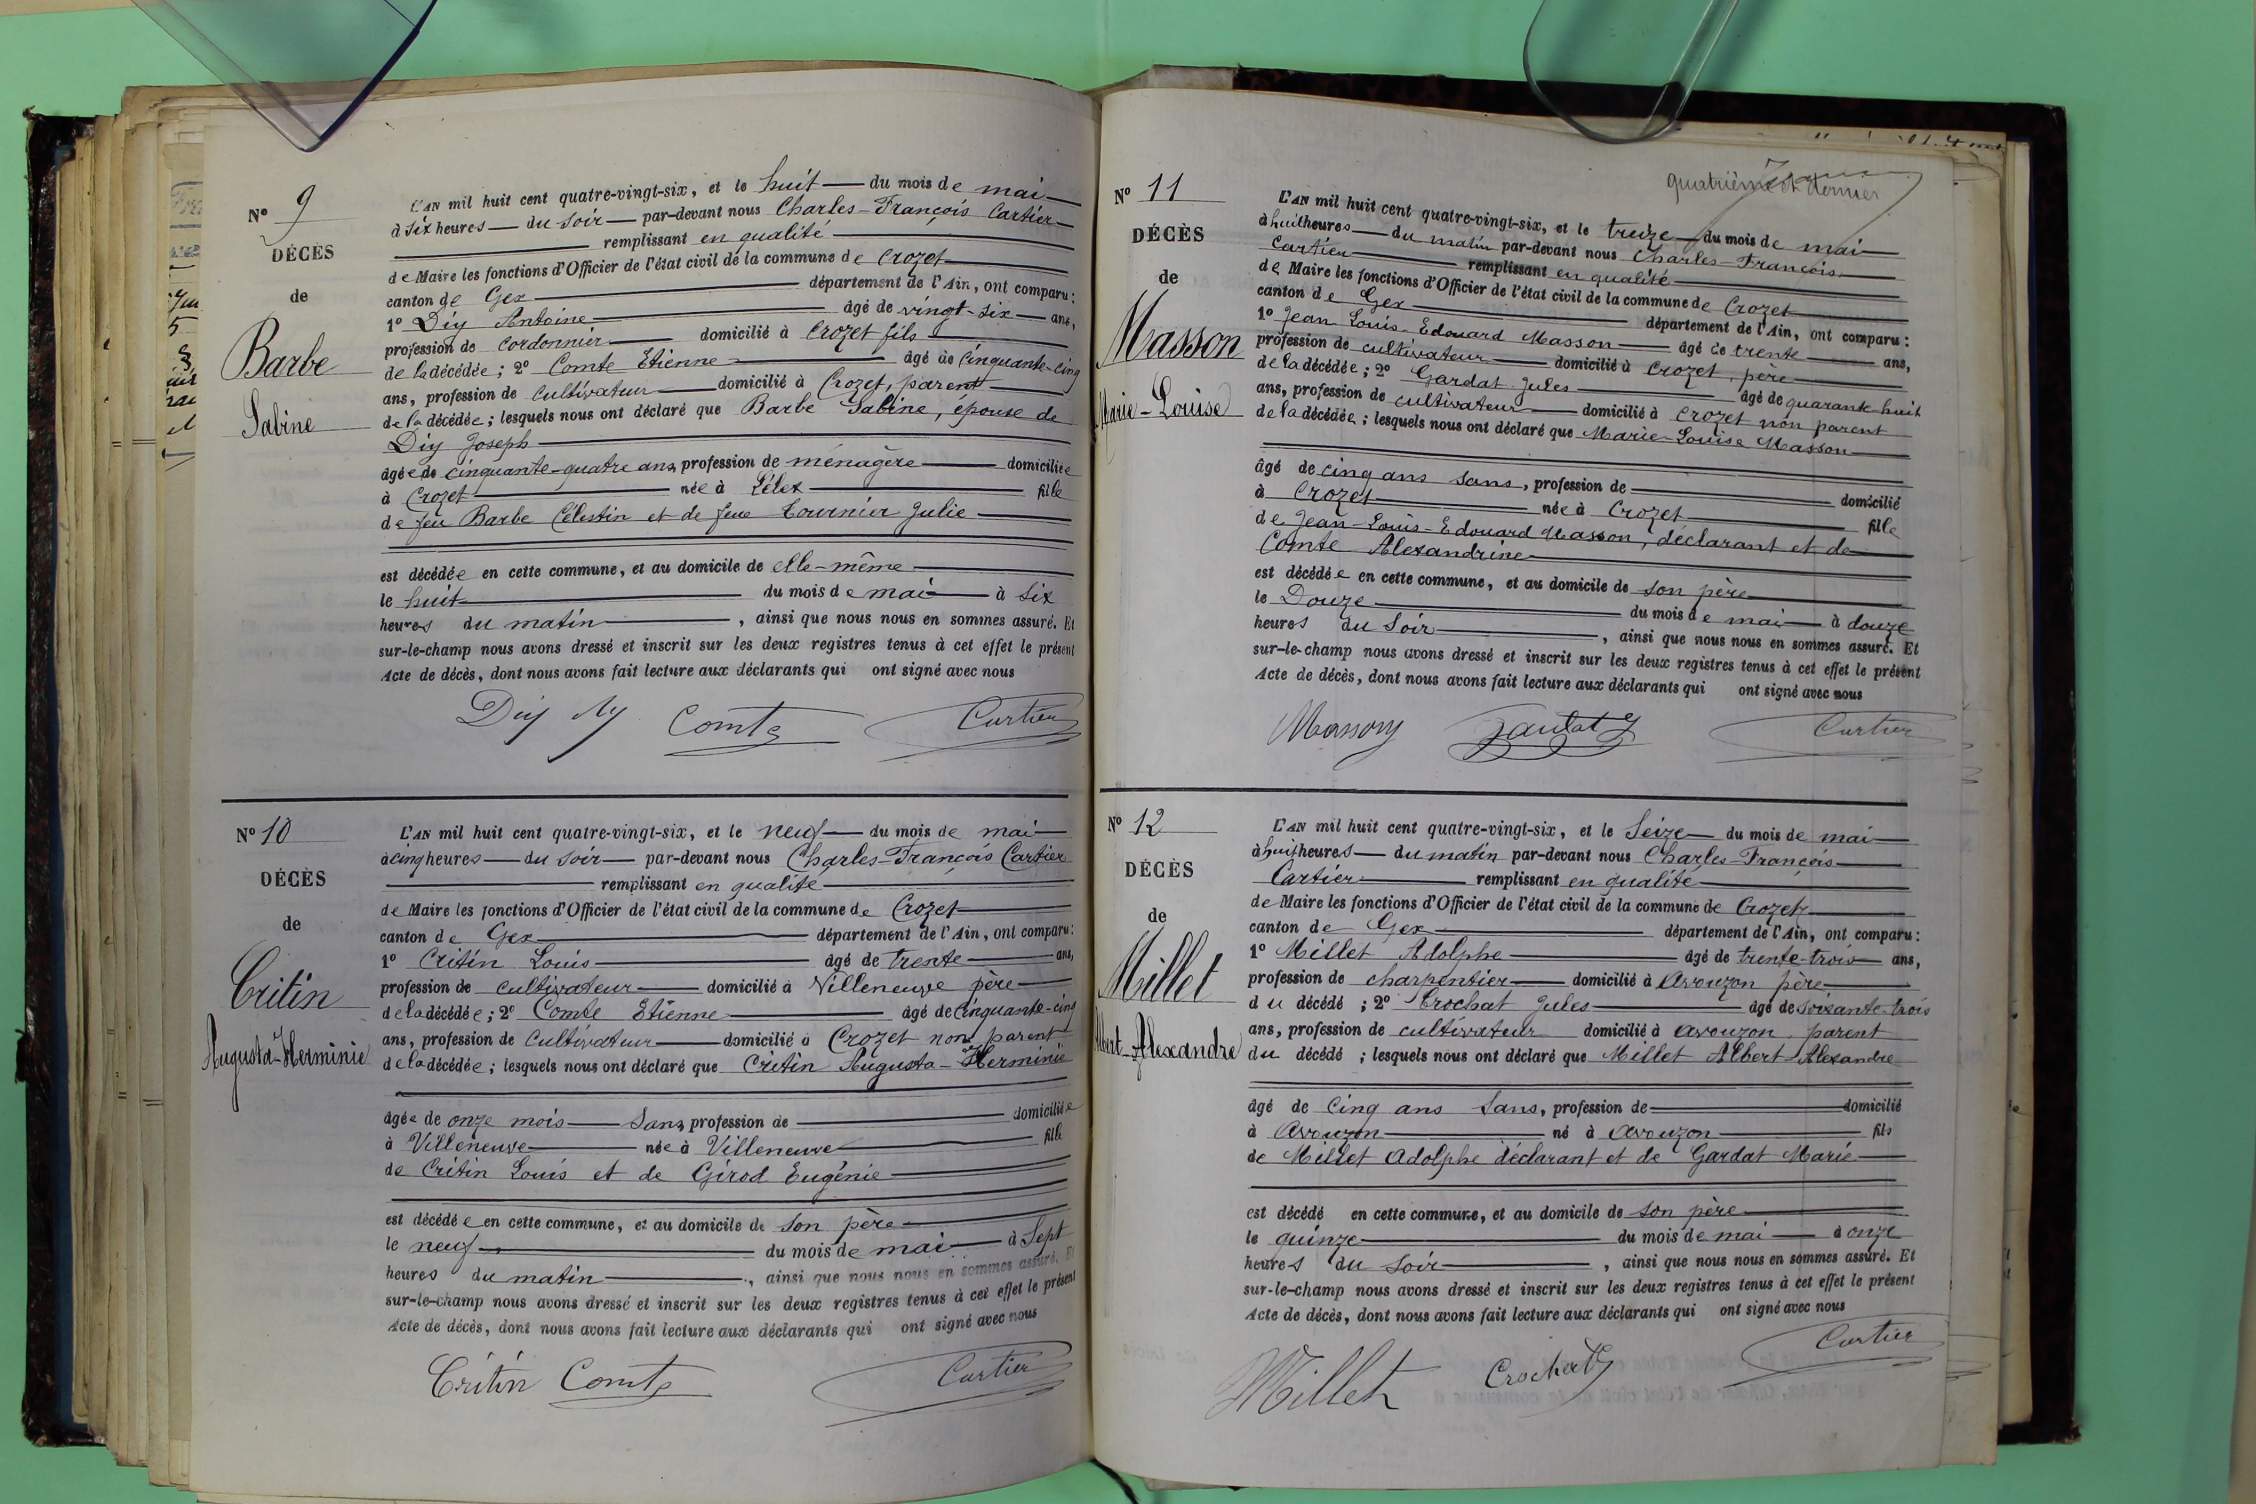 N° 9
DÉCÈS
de
Barbe
Sabine
L'AN mil huit cent quatre-vingt-six, et le huit du mois de mai
à six heures du soir par-devant nous Charles-François Cartier
remplissant en qualité
de Maire les fonctions d'Officier de l'état civil de la commune de Crozet
canton de Gex département de l'Ain, ont comparu :
1° Diy Antoine âgé de vingt-six ans,
profession de cordonnier domicilié à Crozet fils
de la décédée ; 2° Comte Etienne âgé de cinquante-cinq
ans, profession de cultivateur domicilié à Crozet, parent
de la décédée ; lesquels nous ont déclaré que Barbe Sabine, épouse de
Diy Joseph
âgée de cinquante-quatre ans, profession de ménagère domiciliée
à Crozet née à Lélex fille
de feu Barbe Célestin et de feue Tournier Julie
est décédée en cette commune, et au domicile de elle-même
le huit du mois de mai à six
heures du matin, ainsi que nous nous en sommes assuré. Et
sur-le-champ nous avons dressé et inscrit sur les deux registres tenus à cet effet le présent
Acte de décès, dont nous avons fait lecture aux déclarants qui ont signé avec nous
Diy Comte Cartier
N° 10
DÉCÈS
de
Critin
Augusta-Herminie
L'AN mil huit cent quatre-vingt-six, et le neuf du mois de mai
à cinq heures du soir par-devant nous Charles-François Cartier
remplissant en qualité
de Maire les fonctions d'Officier de l'état civil de la commune de Crozet
canton de Gex département de l'Ain, ont comparu :
1° Critin Louis âgé de trente ans,
profession de cultivateur domicilié à Villeneuve père
de la décédée ; 2° Comte Etienne âgé de cinquante-cinq
ans, profession de cultivateur domicilié à Crozet non parent
de la décédée ; lesquels nous ont déclaré que Critin Augusta-Herminie
âgée de onze mois sans, profession de domiciliée
à Villeneuve née à Villeneuve fille
de Critin Louis et de Girod Eugénie
est décédée en cette commune, et au domicile de son père
le neuf du mois de mai à sept
heures du matin, ainsi que nous nous en sommes assuré. Et
sur-le-champ nous avons dressé et inscrit sur les deux registres tenus à cet effet le présent
Acte de décès, dont nous avons fait lecture aux déclarants qui ont signé avec nous
Critin Comte Cartier
quatrième et dernier
N° 11
DÉCÈS
de
Masson
Marie-Louise
L'AN mil huit cent quatre-vingt-six, et le treize du mois de mai
à huit heures du matin par-devant nous Charles-François
Cartier remplissant en qualité
de Maire les fonctions d'Officier de l'état civil de la commune de Crozet
canton de Gex département de l'Ain, ont comparu :
1° Jean Louis-Edouard Masson âgé de trente ans,
profession de cultivateur domicilié à Crozet, père
de la décédée ; 2° Gardat Jules âgé de quarante-huit
ans, profession de cultivateur domicilié à Crozet non parent
de la décédée ; lesquels nous ont déclaré que Marie-Louise Masson
âgé de cinq ans sans, profession de domicilié
à Crozet née à Crozet fille
de Jean-Louis-Edouard Masson, déclarant et de
Comte Alexandrine
est décédée en cette commune, et au domicile de son père
le Douze du mois de mai à douze
heures du soir, ainsi que nous nous en sommes assuré. Et
sur-le-champ nous avons dressé et inscrit sur les deux registres tenus à cet effet le présent
Acte de décès, dont nous avons fait lecture aux déclarants qui ont signé avec nous
Masson Gardat Cartier
N° 12
DÉCÈS
de
Millet
Albert-Alexandre
L'AN mil huit cent quatre-vingt-six, et le Seize du mois de mai
à huit heures du matin par-devant nous Charles-François
Cartier remplissant en qualité
de Maire les fonctions d'Officier de l'état civil de la commune de Crozet
canton de Gex département de l'Ain, ont comparu :
1° Millet Adolphe âgé de trente-trois ans,
profession de charpentier domicilié à Avouzon père
du décédé ; 2° Crochat Jules âgé de soixante-trois
ans, profession de cultivateur domicilié à Avouzon, parent
du décédé ; lesquels nous ont déclaré que Millet Albert-Alexandre
âgé de cinq ans sans, profession de domicilié
à Avouzon né à Avouzon fils
de Millet Adolphe déclarant et de Gardat Marie
est décédé en cette commune, et au domicile de son père
le quinze du mois de mai à onze
heures du soir, ainsi que nous nous en sommes assuré. Et
sur-le-champ nous avons dressé et inscrit sur les deux registres tenus à cet effet le présent
Acte de décès, dont nous avons fait lecture aux déclarants qui ont signé avec nous
Millet Crochat Cartier